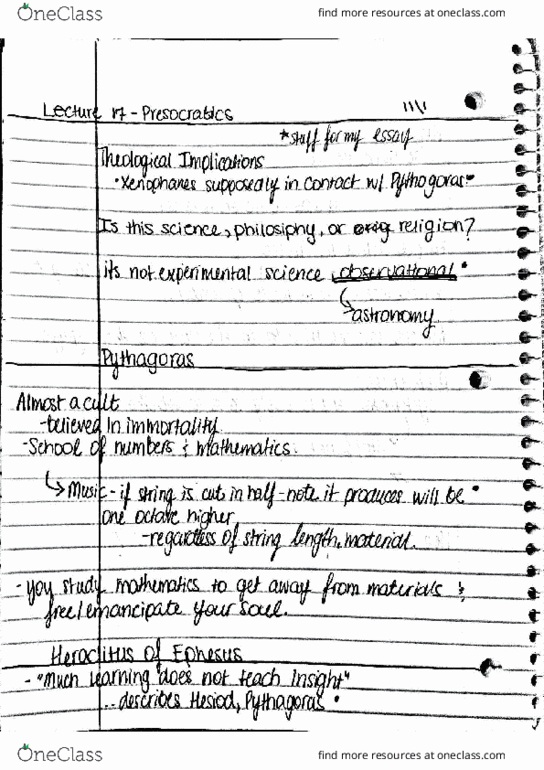 OneClass
find more resources at oneclass.com
Lecture 17 - Presocratics
*stuff for my essay
Theological Implications
•Xenophanes supposedly in contact w/ Pythogoras•
Is this science, philosiphy, or religion?
its not experimental science, observational •
↳astronomy
Pythagoras
Almost a cult
-believed in immortality
-School of numbers & mathematics.
↳Music - if string is cut in half - note it produces will be •
one octave higher
-regardless of string length, material.
-you study mathematics to get away from materials &
free/emancipate your soul.
Heraclitus of Ephesus
- "Much learning does not teach insight"
...describes Hesiod, Pythagoras •
OneClass
find more resources at oneclass.com